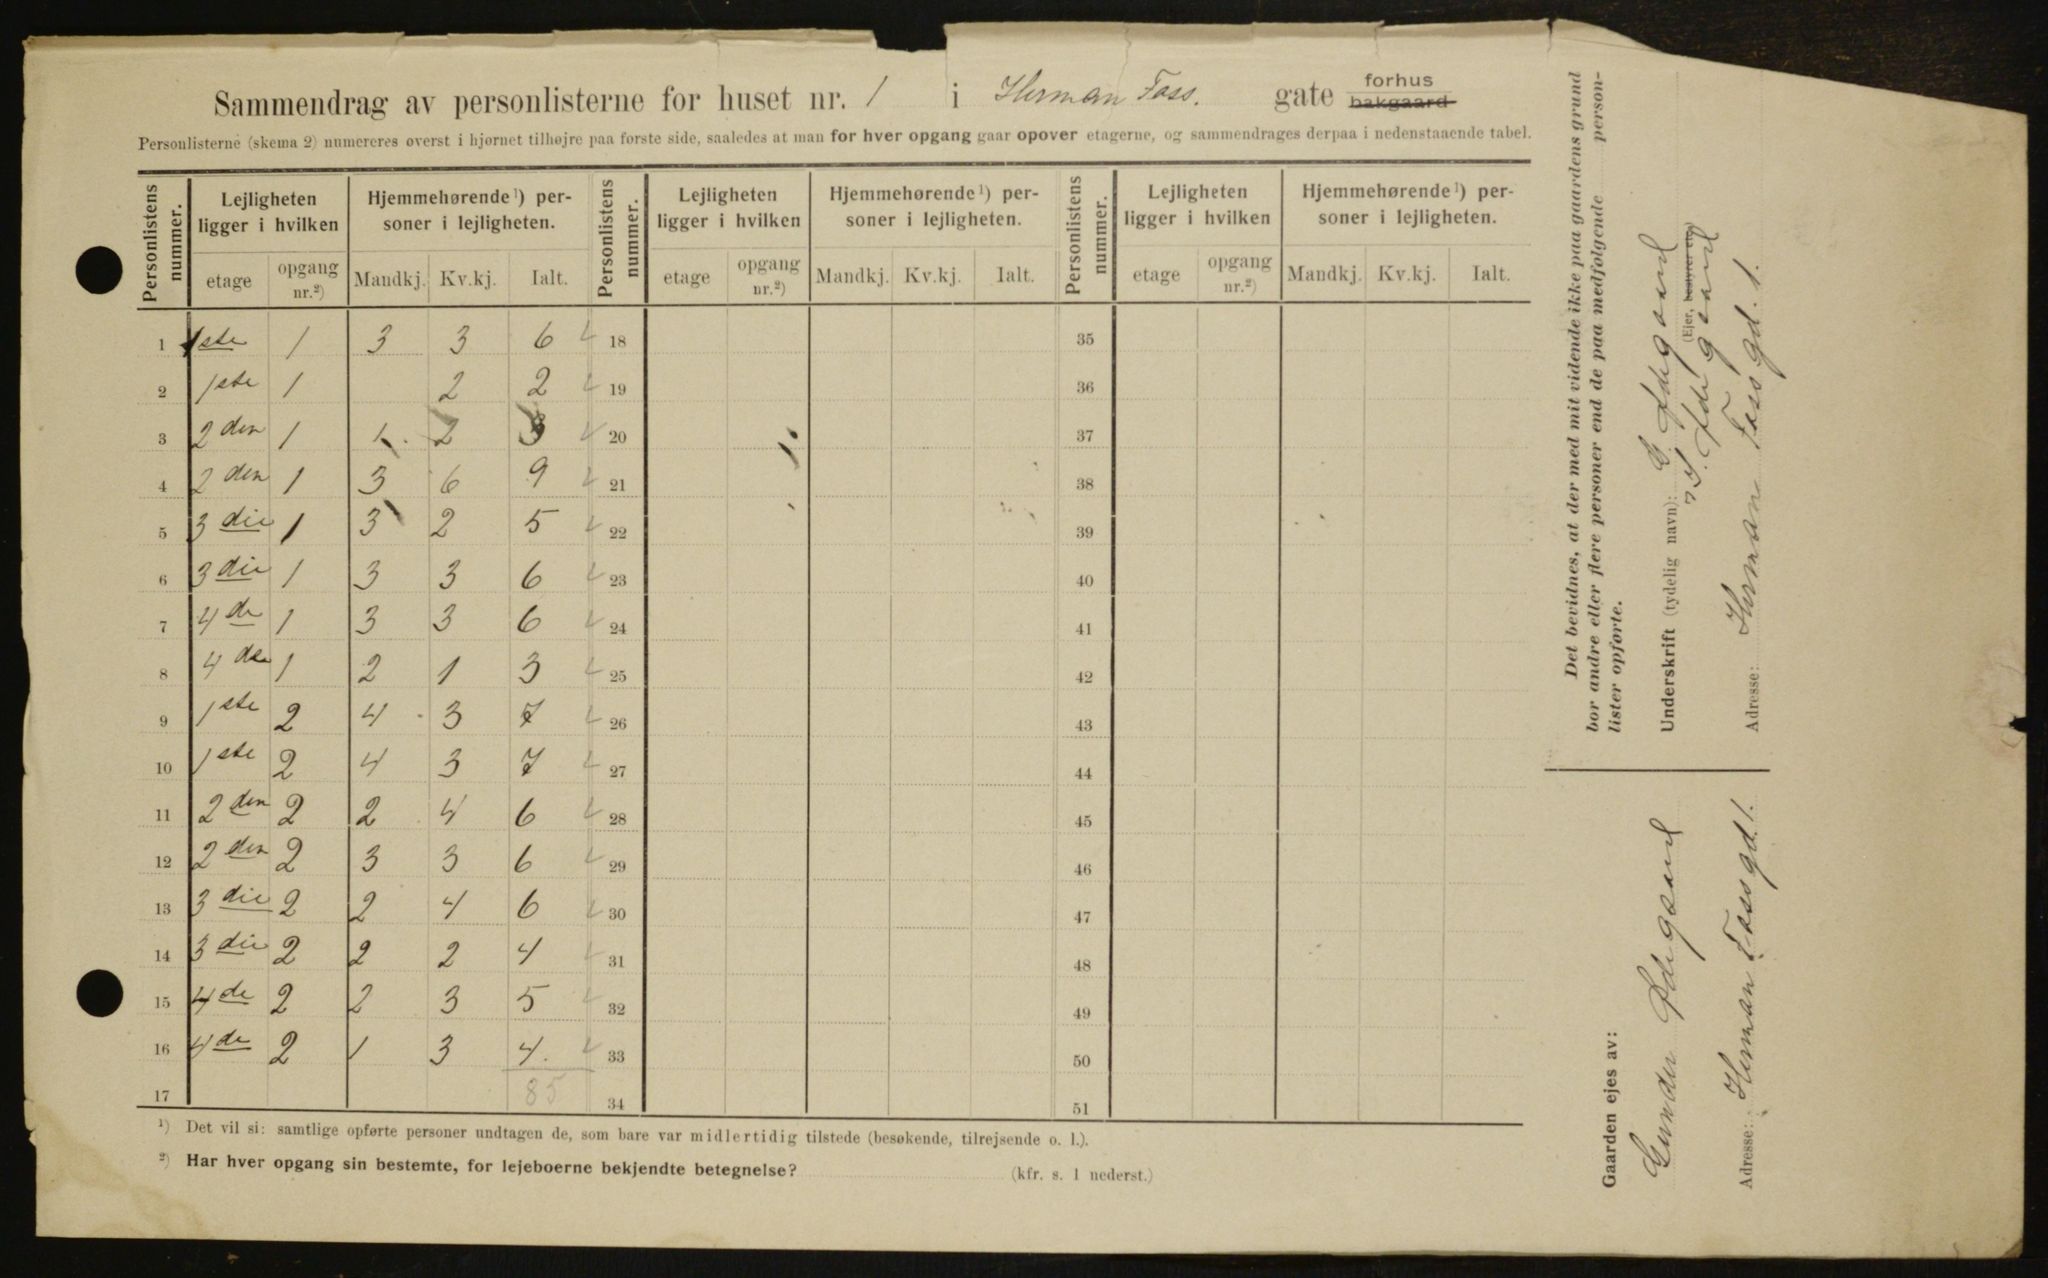 Sammendrag av personlisterne for huset nr. 1 i Herman Foss. gate forhus bakgaard
Personlisterne (skema 2) numereres øverst i hjørnet tilhøjre paa første side, saaledes at man for hver opgang gaar opover etagerne, og sammendrages derpaa i nedenstaaende tabel.
Personlistens nummer. Lejligheten ligger i hvilken Hjemmehørende¹) personer i lejligheten. Personlistens nummer. Lejligheten ligger i hvilken Hjemmehørende¹) personer i lejligheten. Personlistens nummer. Lejligheten ligger i hvilken Hjemmehørende¹) personer i lejligheten.
etage opgang nr.²) Mandkj. Kv.kj. Ialt. etage opgang nr.²) Mandkj. Kv.kj. Ialt. etage opgang nr.²) Mandkj. Kv.kj. Ialt.
1 1ste 1 3 3 6 18 35
2 1ste 1 2 2 19 36
3 2den 1 1 2 3 20 37
4 2den 1 3 6 9 21 38
5 3die 1 3 2 5 22 39
6 3die 1 3 3 6 23 40
7 4de 1 3 3 6 24 41
8 4de 1 2 1 3 25 42
9 1ste 2 4 3 7 26 43
10 1ste 2 4 3 7 27 44
11 2den 2 2 4 6 28 45
12 2den 2 3 3 6 29 46
13 3die 2 2 4 6 30 47
14 3die 2 2 2 4 31 48
15 4de 2 2 3 5 32 49
16 4de 2 1 3 4. 33 50
17 85 34 51
¹) Det vil si: samtlige opførte personer undtagen de, som bare var midlertidig tilstede (besøkende, tilrejsende o. l.).
²) Har hver opgang sin bestemte, for lejeboerne bekjendte betegnelse? (kfr. s. 1 nederst.)
Det bevidnes, at der med mit vidende ikke paa gaardens grund
bor andre eller flere personer end de paa medfølgende personlister opførte.
Underskrift (tydelig navn): G. Ødegaard
(Ejer, bestyrer etc.)
Adresse: Herman Foss gd. 1.
Gaarden ejes av:
Gunder Ødegaard
Adresse: Herman Foss gd. 1.